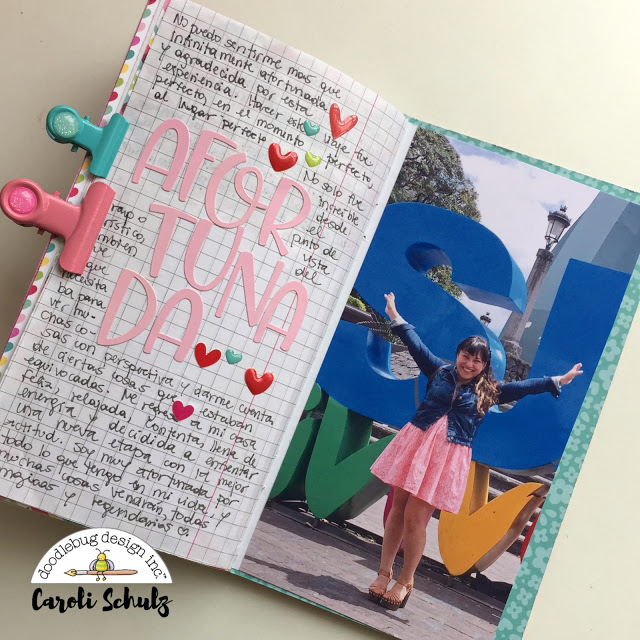 No puedo sentirme mas que
infinitamente afortunada
y agradecida por esta
experiencia. Hacer este viaje fue
perfecto, en el momento perfecto,
al lugar perfecto
No solo fue
increible
desde
el
punto de
vista
del
AFOR
TUNA
DA
que
necesita
ba para
ver mu-
chas co-
sas con perspectiva y darme cuenta
de ciertas cosas que estaban
equivocadas. Me regreso a mi casa
feliz, relajada, contenta, llena de
energia y decidida a enfrentar
una nueva etapa con la mejor
actitud. Soy muy afortunada por
todo lo que tengo en mi vida y
muchas cosas vendran, todas
magicas y legendarias
SU
doodlebug design inc™
Caroli Schulz